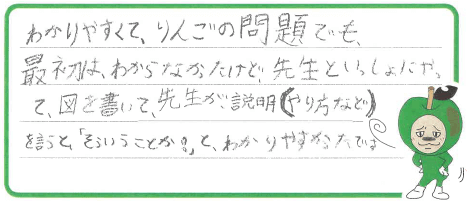 わかりやすくて、りんごの問題でも、
最初は、わからなかったけど、先生といっしょにやっ
て、図を書いて、先生が説明(やり方など)
を言うと、「そういうことか。」と、わかりやすかったです